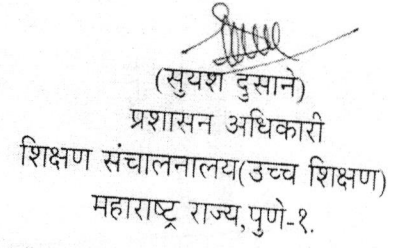 (सुयश दुसाने)
प्रशासन अधिकारी
शिक्षण संचालनालय(उच्च शिक्षण)
महाराष्ट्र राज्य,पुणे-१.